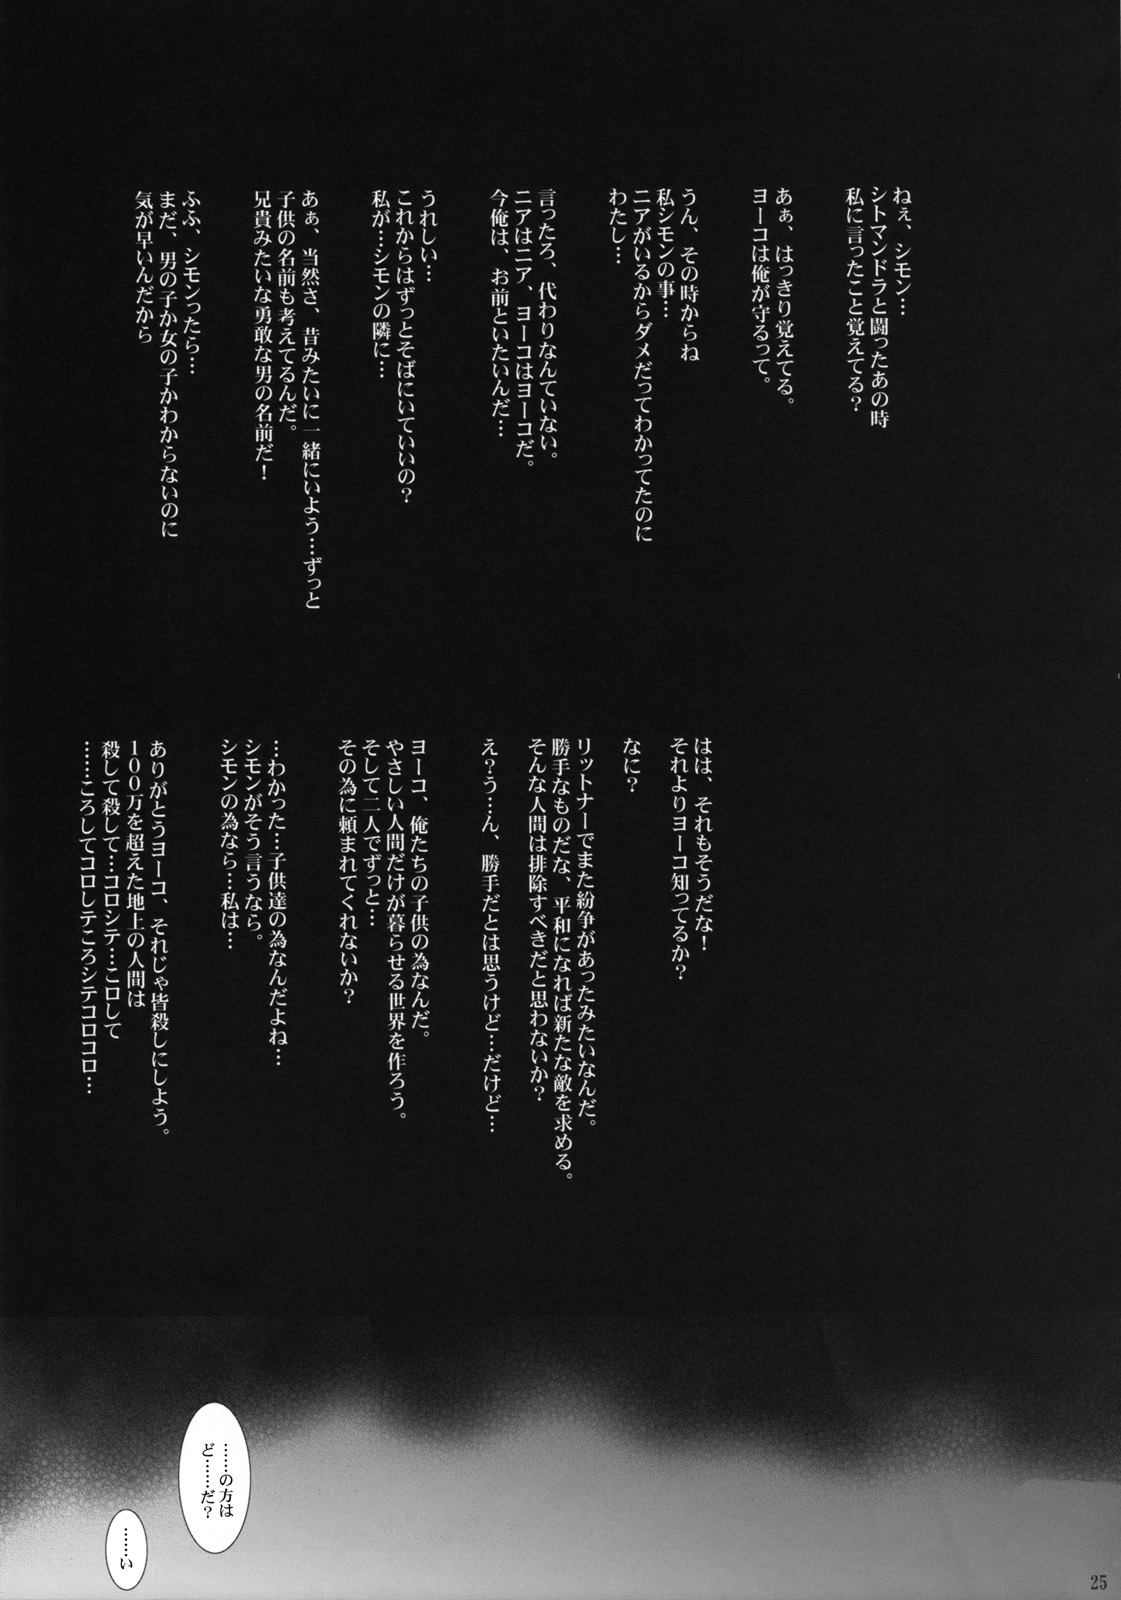 ねぇ、シモン…
シトマンドラと闘ったあの時
私に言ったこと覚えてる？
あぁ、はっきり覚えてる。
ヨーコは俺が守るって。
うん、その時からね
私シモンの事…
ニアがいるからダメだってわかってたのに
わたし…
言ったろ、代わりなんていない。
ニアはニア、ヨーコはヨーコだ。
今俺は、お前といたいんだ…
うれしい…
これからはずっとそばにいていいの？
私が…シモンの隣に…
あぁ、当然さ、昔みたいに一緒にいよう…ずっと
子供の名前も考えてるんだ。
兄貴みたいな勇敢な男の名前だ！
ふふ、シモンったら…
まだ、男の子か女の子かわからないのに
気が早いんだから
はは、それもそうだな！
それよりヨーコ知ってるか？
なに？
リットナーでまた紛争があったみたいなんだ。
勝手なものだな、平和になれば新たな敵を求める。
そんな人間は排除すべきだと思わないか？
え？う…ん、勝手だとは思うけど…だけど…
ヨーコ、俺たちの子供の為なんだ。
やさしい人間だけが暮らせる世界を作ろう。
そして二人でずっと…
その為に頼まれてくれないか？
…わかった…子供達の為なんだよね…
シモンがそう言うなら。
シモンの為なら…私は…
ありがとうヨーコ、それじゃ皆殺しにしよう。
100万を超えた地上の人間は
殺して殺して…コロシテ…こロして
……ころしてコロしテころシテコロコロ…
……の方は
ど……だ？
……い
25